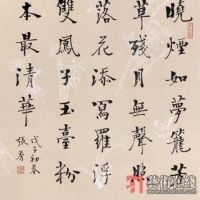 曉煙如夢籠芳
草殘月無聲照
落花添寫羅浮
雙鳳子玉臺粉
本最清華
戊子初春
張芳